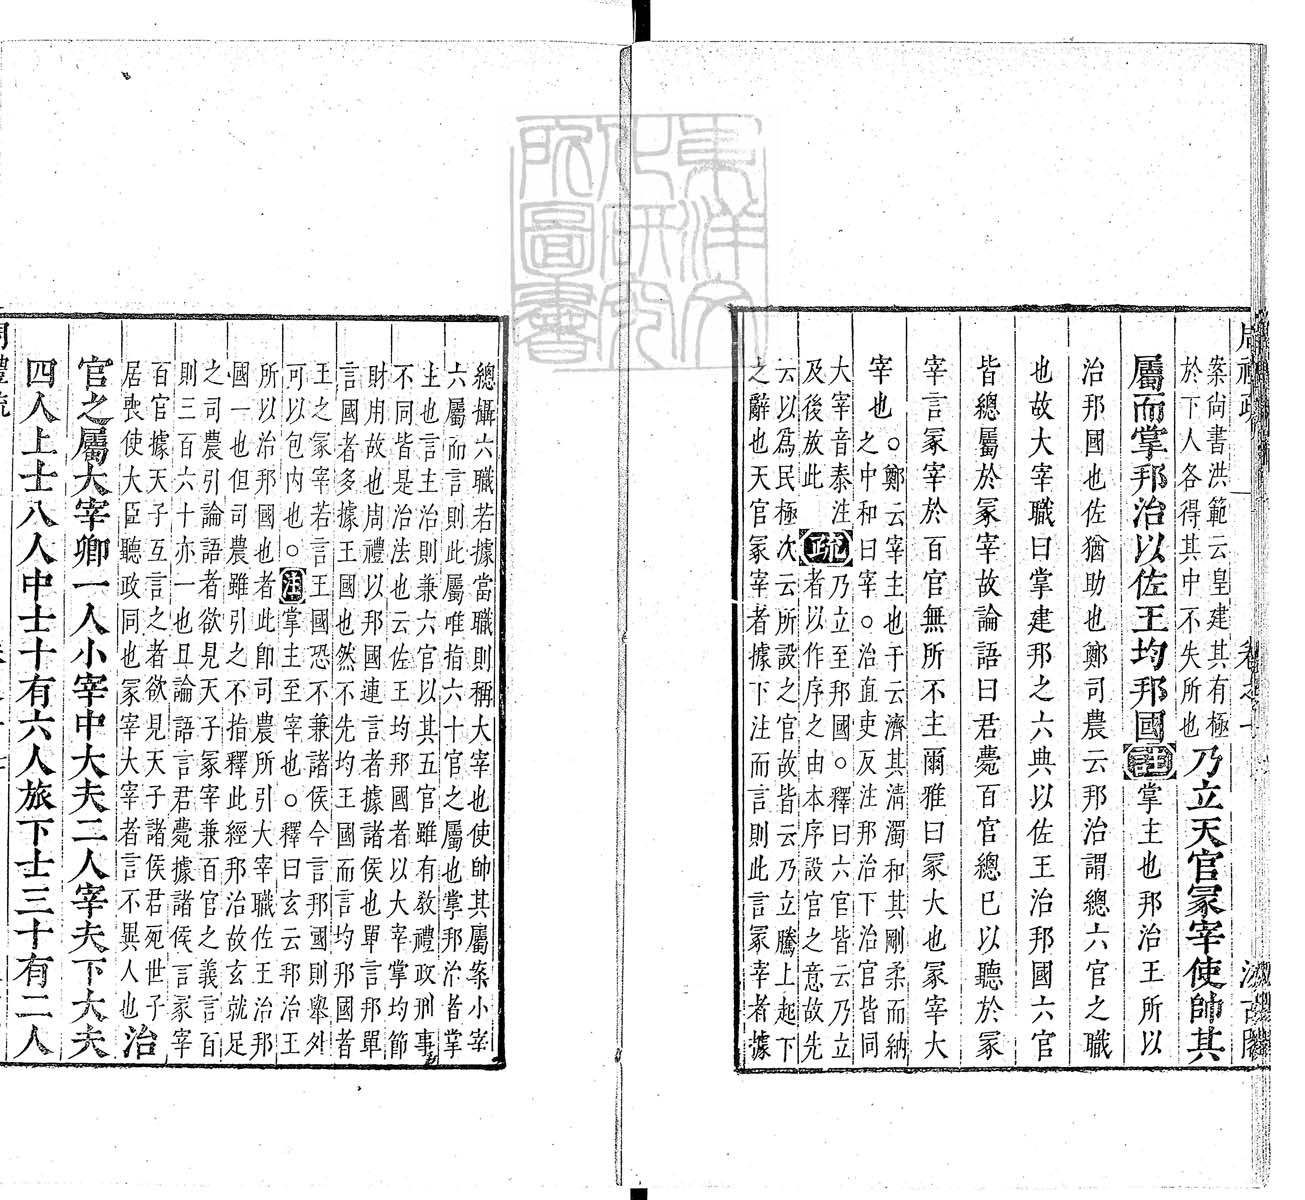 案尚書洪範云皇建其有極
於下人各得其中不失所也
乃立天官冢宰使帥其
屬而掌邦治以佐王均邦國
註
掌主也邦治王所以
治邦國也佐猶助也鄭司農云邦治謂總六官之職
也故大宰職曰掌建邦之六典以佐王治邦國六官
皆總屬於冢宰故論語曰君薨百官總已以聽於冢
宰言冢宰於百官無所不主爾雅曰冢大也冢宰大
宰也
○鄭云宰主也干云濟其清濁和其剛柔而納
之中和曰宰○治直吏反注邦治下治官皆同
大宰音泰注
及後放此
疏
乃立至邦國○釋曰六官皆云乃立
者以作序之由本序設官之意故先
云以為民極次云所設之官故皆云乃立騰上起下
之辭也天官冢宰者據下注而言則此言冢宰者據
總攝六職若據當職則稱大宰也使帥其屬案小宰
六屬而言則此屬唯指六十官之屬也掌邦治者掌
主也言主治則兼六官以其五官雖有教禮政刑事
不同皆是治法也云佐王均邦國者以大宰掌均節
財用故也周禮以邦國連言者據諸侯也單言邦單
言國者多據王國也然不先均王國而言均邦國者
王之冢宰若言王國恐不兼諸侯今言邦國則舉外
可以包內也○
注
掌主至宰也○釋曰玄云邦治王
所以治邦國也者此卽司農所引大宰職佐王治邦
國一也但司農雖引之不指釋此經邦治故玄就足
之司農引論語者欲見天子冢宰兼百官之義言百
則三百六十亦一也且論語言君薨據諸侯言冢宰
百官據天子互言之者欲見天子諸侯君死世子
居喪使大臣聽政同也冢宰大宰者言不異人也
治
官之屬大宰卿一人小宰中大夫二人宰夫下大夫
四人上士八人中士十有六人旅下士三十有二人
東洋文
化研究
所圖書